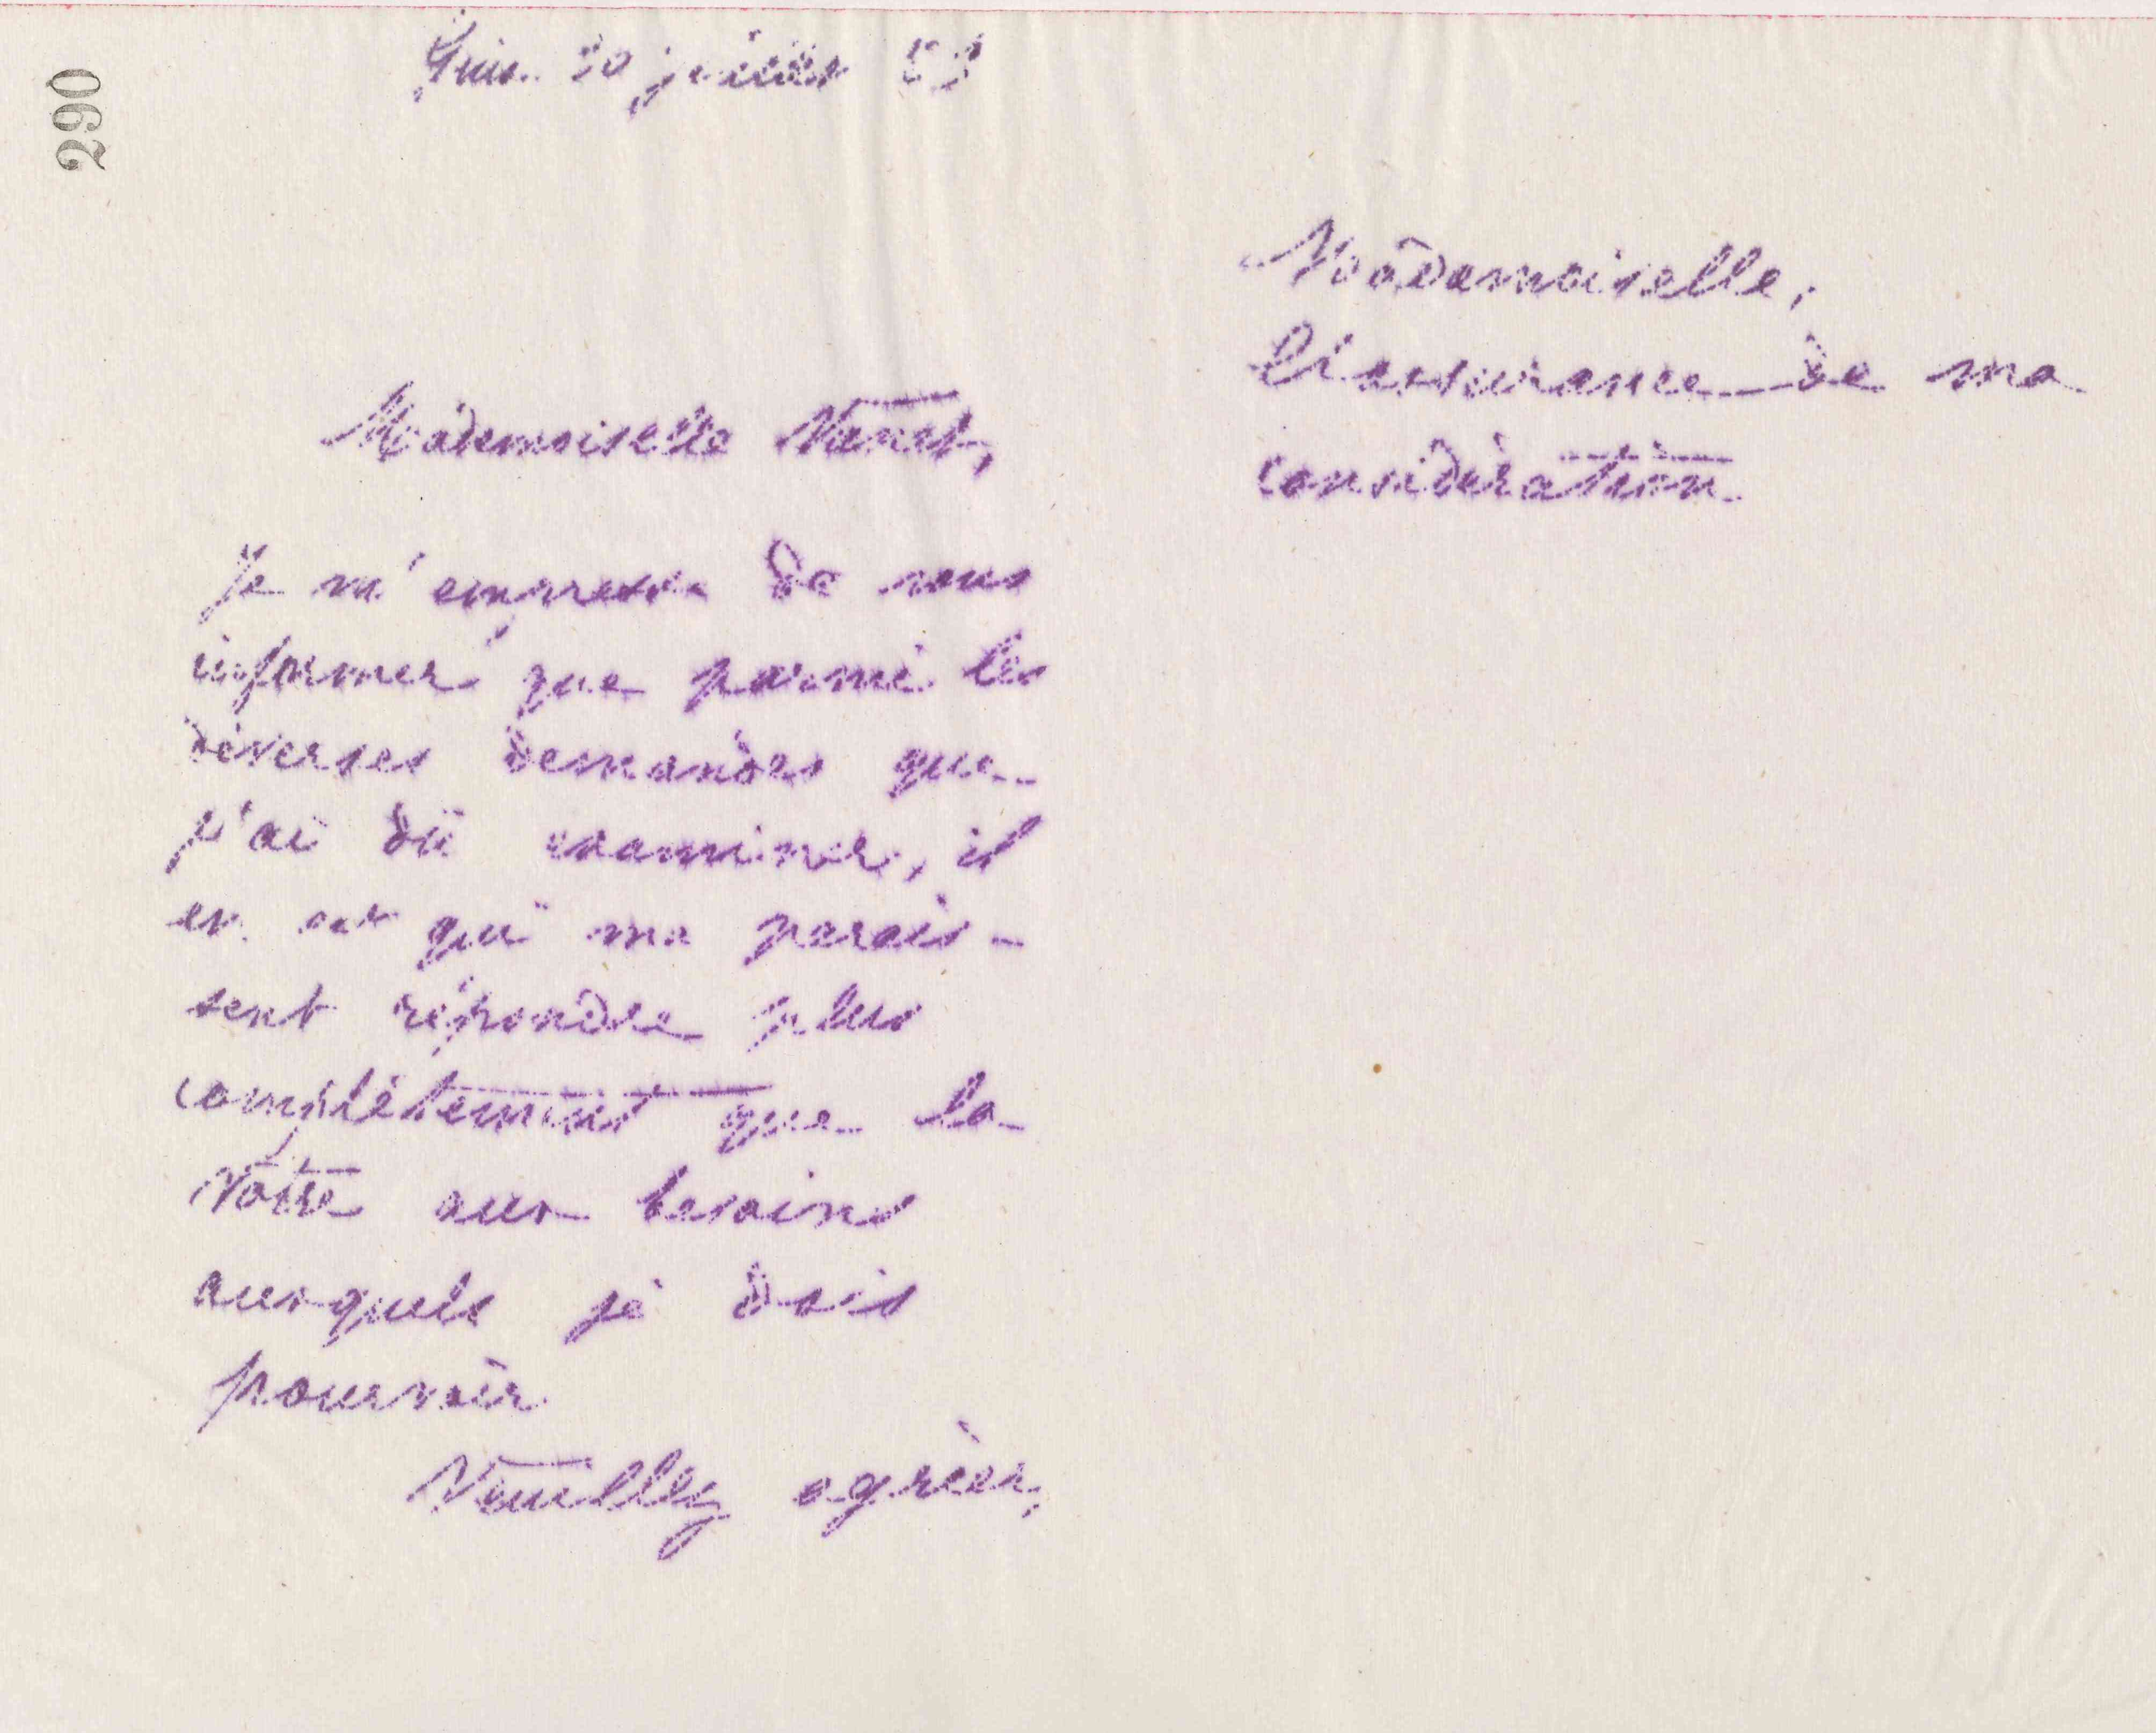 290
Guise 30 juillet 83
Mademoiselle Nanet,
Je m'empresse de vous
informer que parmi les
diverses demandes que
j'ai dû examiner, il
en est qui me parais-
sent répondre plus
complètement que la
vôtre aux besoins
auxquels je dois
pourvoir.
Veuillez agréer,
Mademoiselle,
l'assurance de ma
considération.